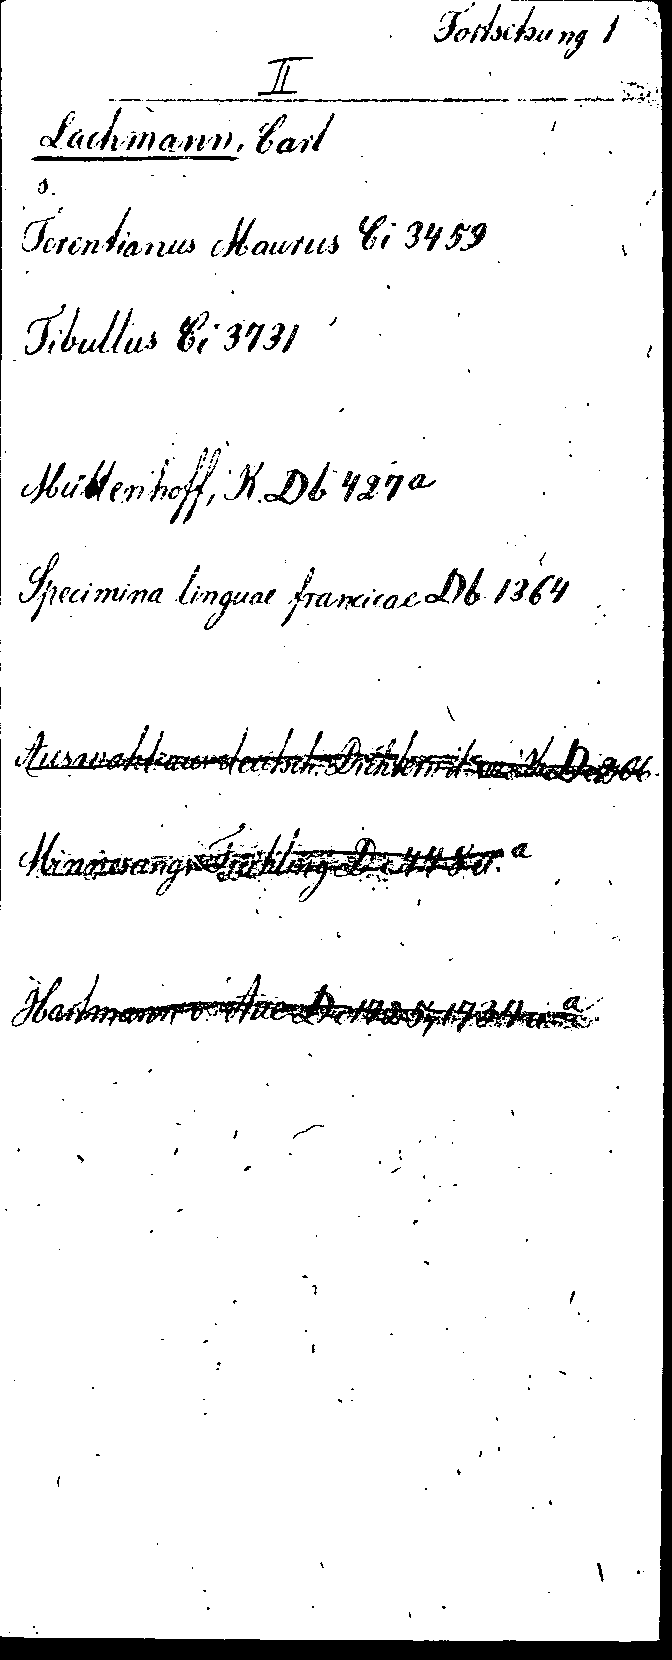 Fortsetzung 1
II
Lachmann, Carl
s.
Terentianus Maurus Ci 3459
Tibullus Ci 3731
Müllenhoff, K. Db 427a
Specimina linguae francicae Db 1364
Auswahl aus deutsch. Dichtern
Minnesangs Frühling Dc 448 a
Hartmann v. Aue Dc 1725, 1734 a